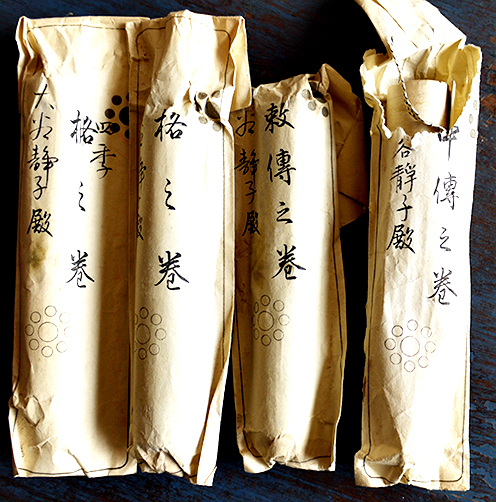 四季
格之巻
大谷静子殿
格之巻
敕傳之巻
谷静子殿
中傳之巻
谷静子殿